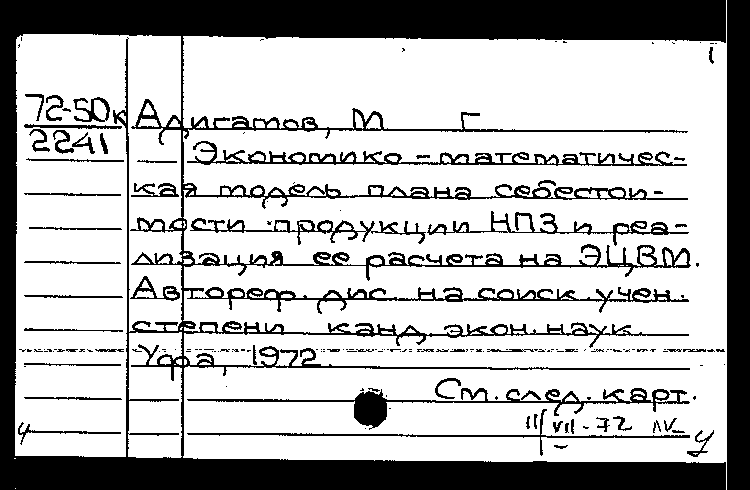 1
72-50к Адигамов, М Г
2241
Экономико-математичес-
кая модель плана себестои-
мости продукции НПЗ и реа-
лизация ее расчета на ЭЦВМ.
Автореф. дис. на соиск. учен.
степени канд. экон. наук.
Уфа, 1972.
См. след. карт.
VII-72